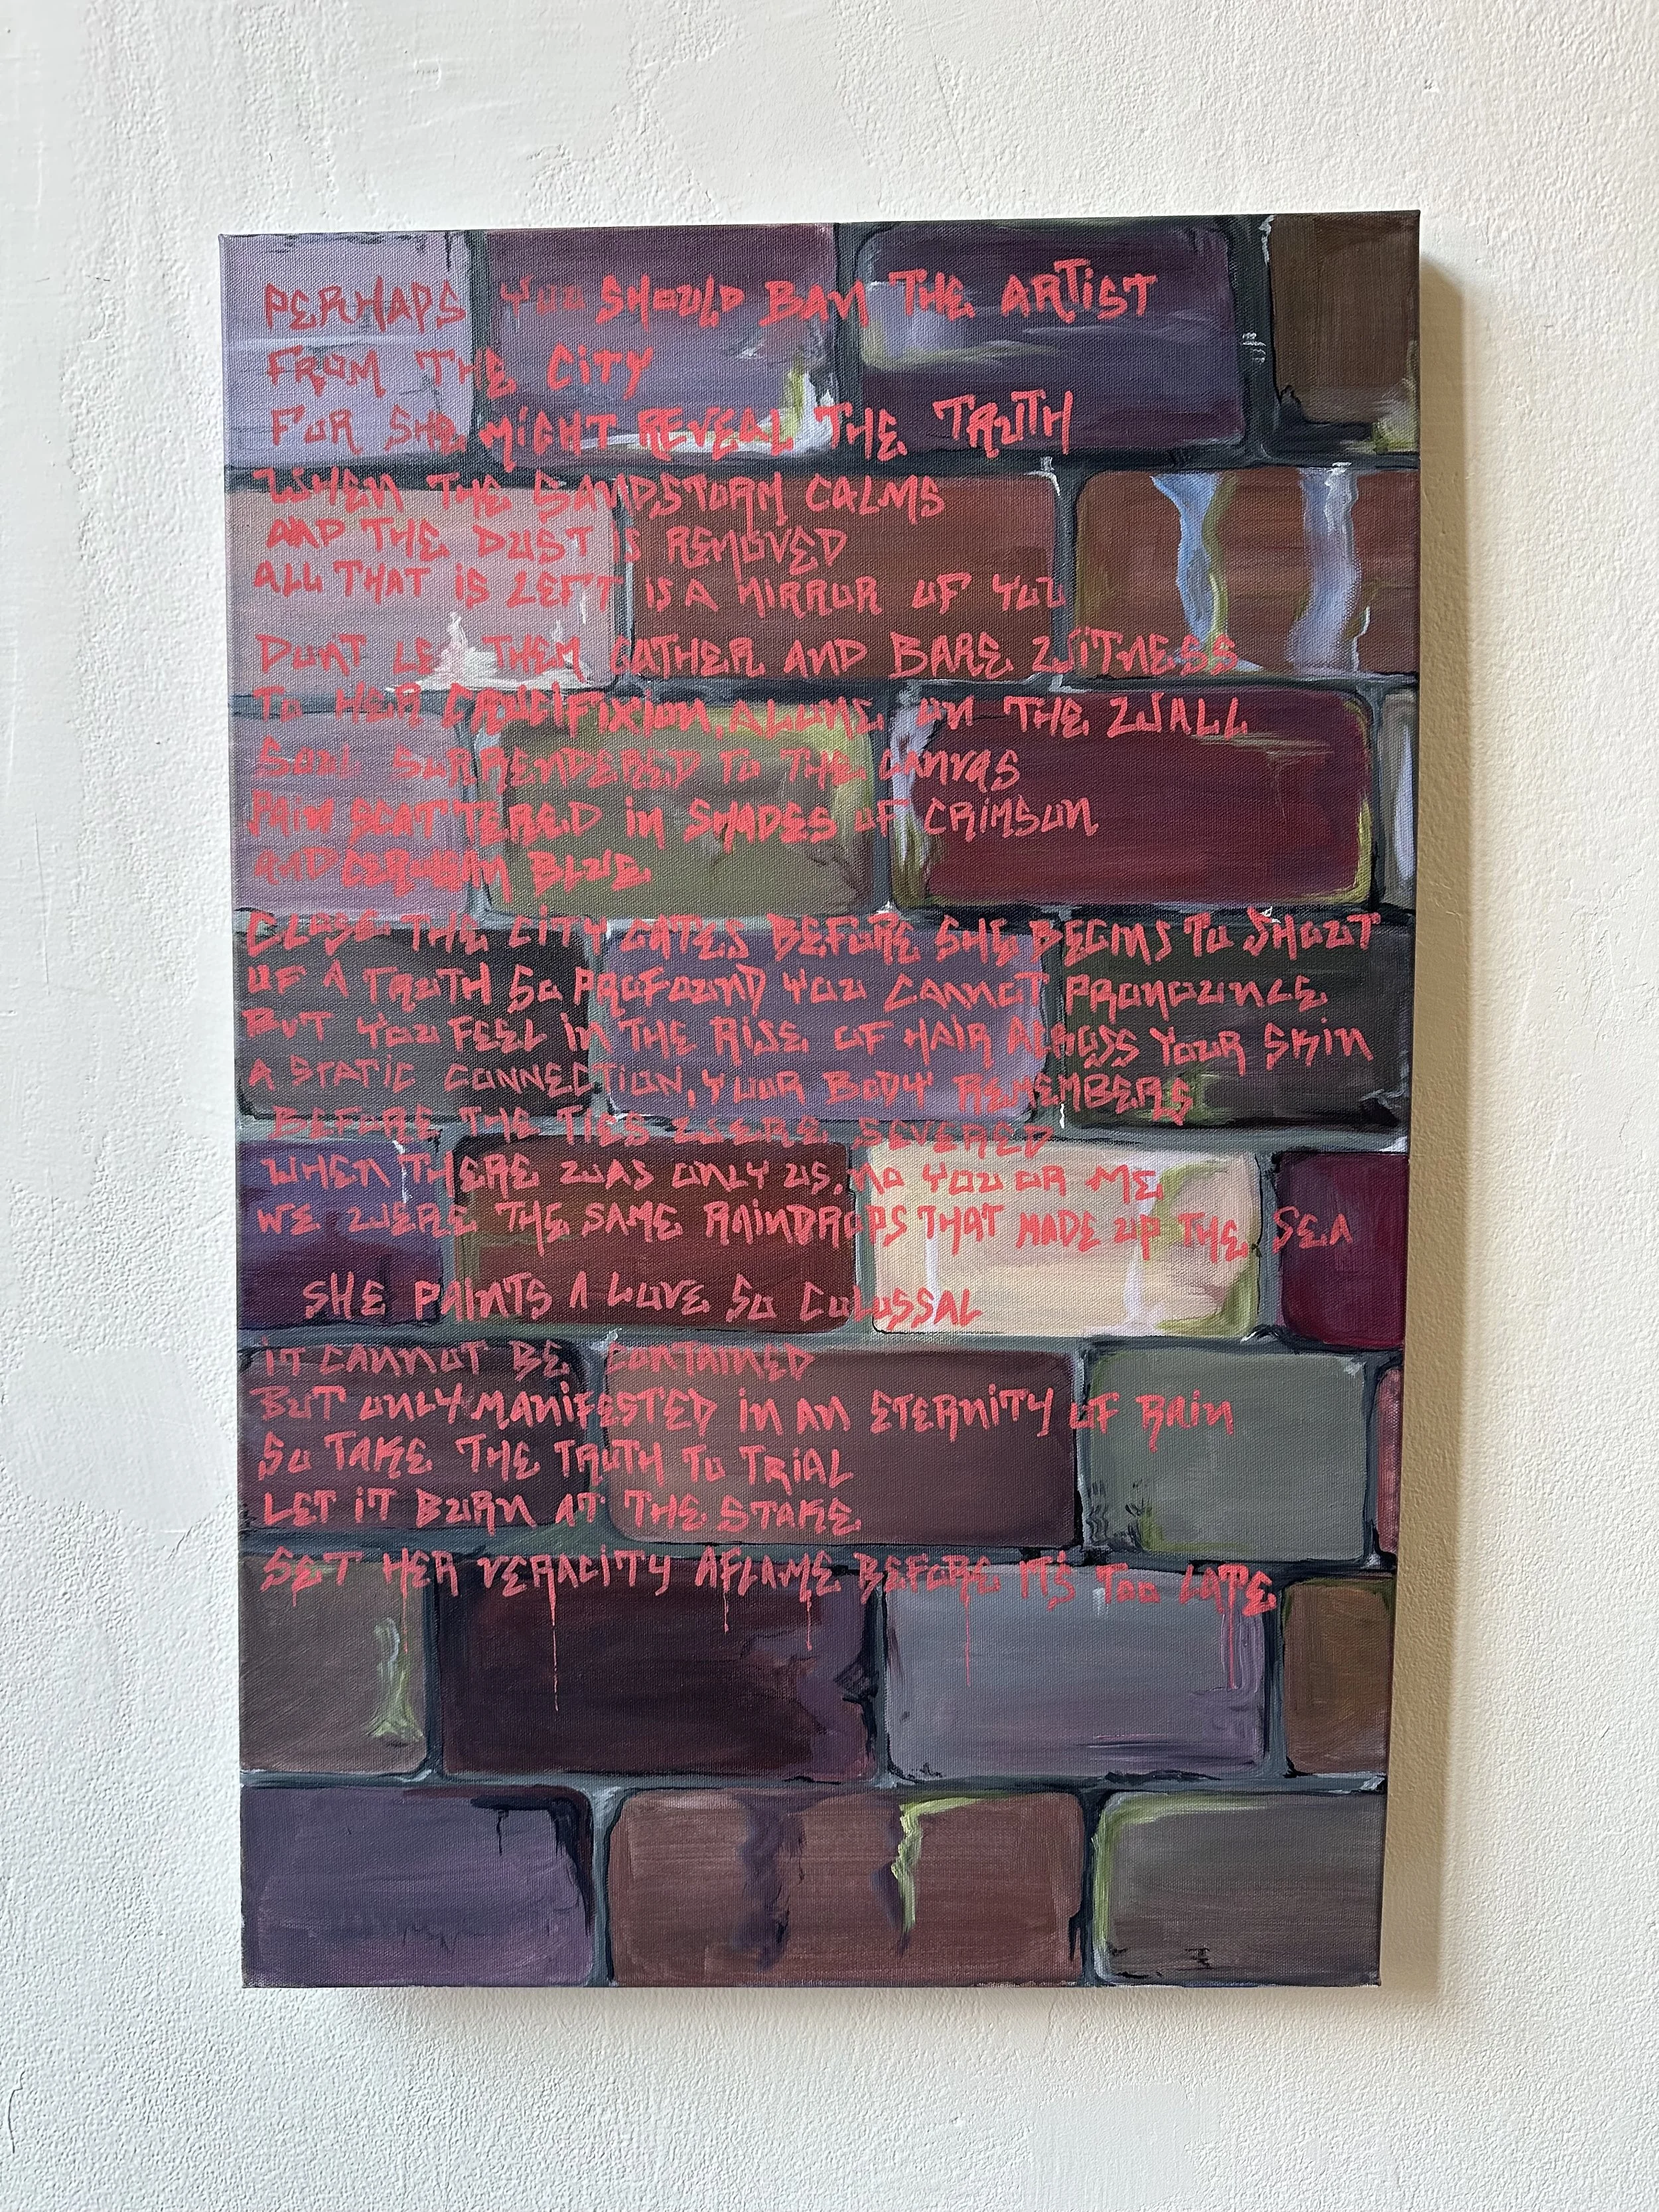 PERHAPS YOU SHOULD BAN THE ARTIST
FROM THE CITY
FOR SHE MIGHT REVEAL THE TRUTH
WHEN THE SANDSTORM CALMS
AND THE DUST IS REMOVED
ALL THAT IS LEFT IS A MIRROR OF YOU
DON'T LET THEM GATHER AND BARE WITNESS
TO HER CRUCIFIXION, ALONE ON THE WALL
SOUL SURRENDERED TO THE CANVAS
PAIN SCATTERED IN SHADES OF CRIMSON
AND CERULEAN BLUE
CLOSE THE CITY GATES BEFORE SHE BEGINS TO SHOUT
OF A TRUTH SO PROFOUND YOU CANNOT PRONOUNCE
BUT YOU FEEL IN THE RISE OF HAIR ACROSS YOUR SKIN
A STATIC CONNECTION, YOUR BODY REMEMBERS
BEFORE THE TIES WERE SEVERED
WHEN THERE WAS ONLY US, NO YOU OR ME
WE WERE THE SAME RAINDROPS THAT MADE UP THE SEA
SHE PAINTS A LOVE SO COLOSSAL
IT CANNOT BE CONTAINED
BUT ONLY MANIFESTED IN AN ETERNITY OF RAIN
SO TAKE THE TRUTH TO TRIAL
LET IT BURN AT THE STAKE
SET HER VERACITY AFLAME BEFORE IT'S TOO LATE